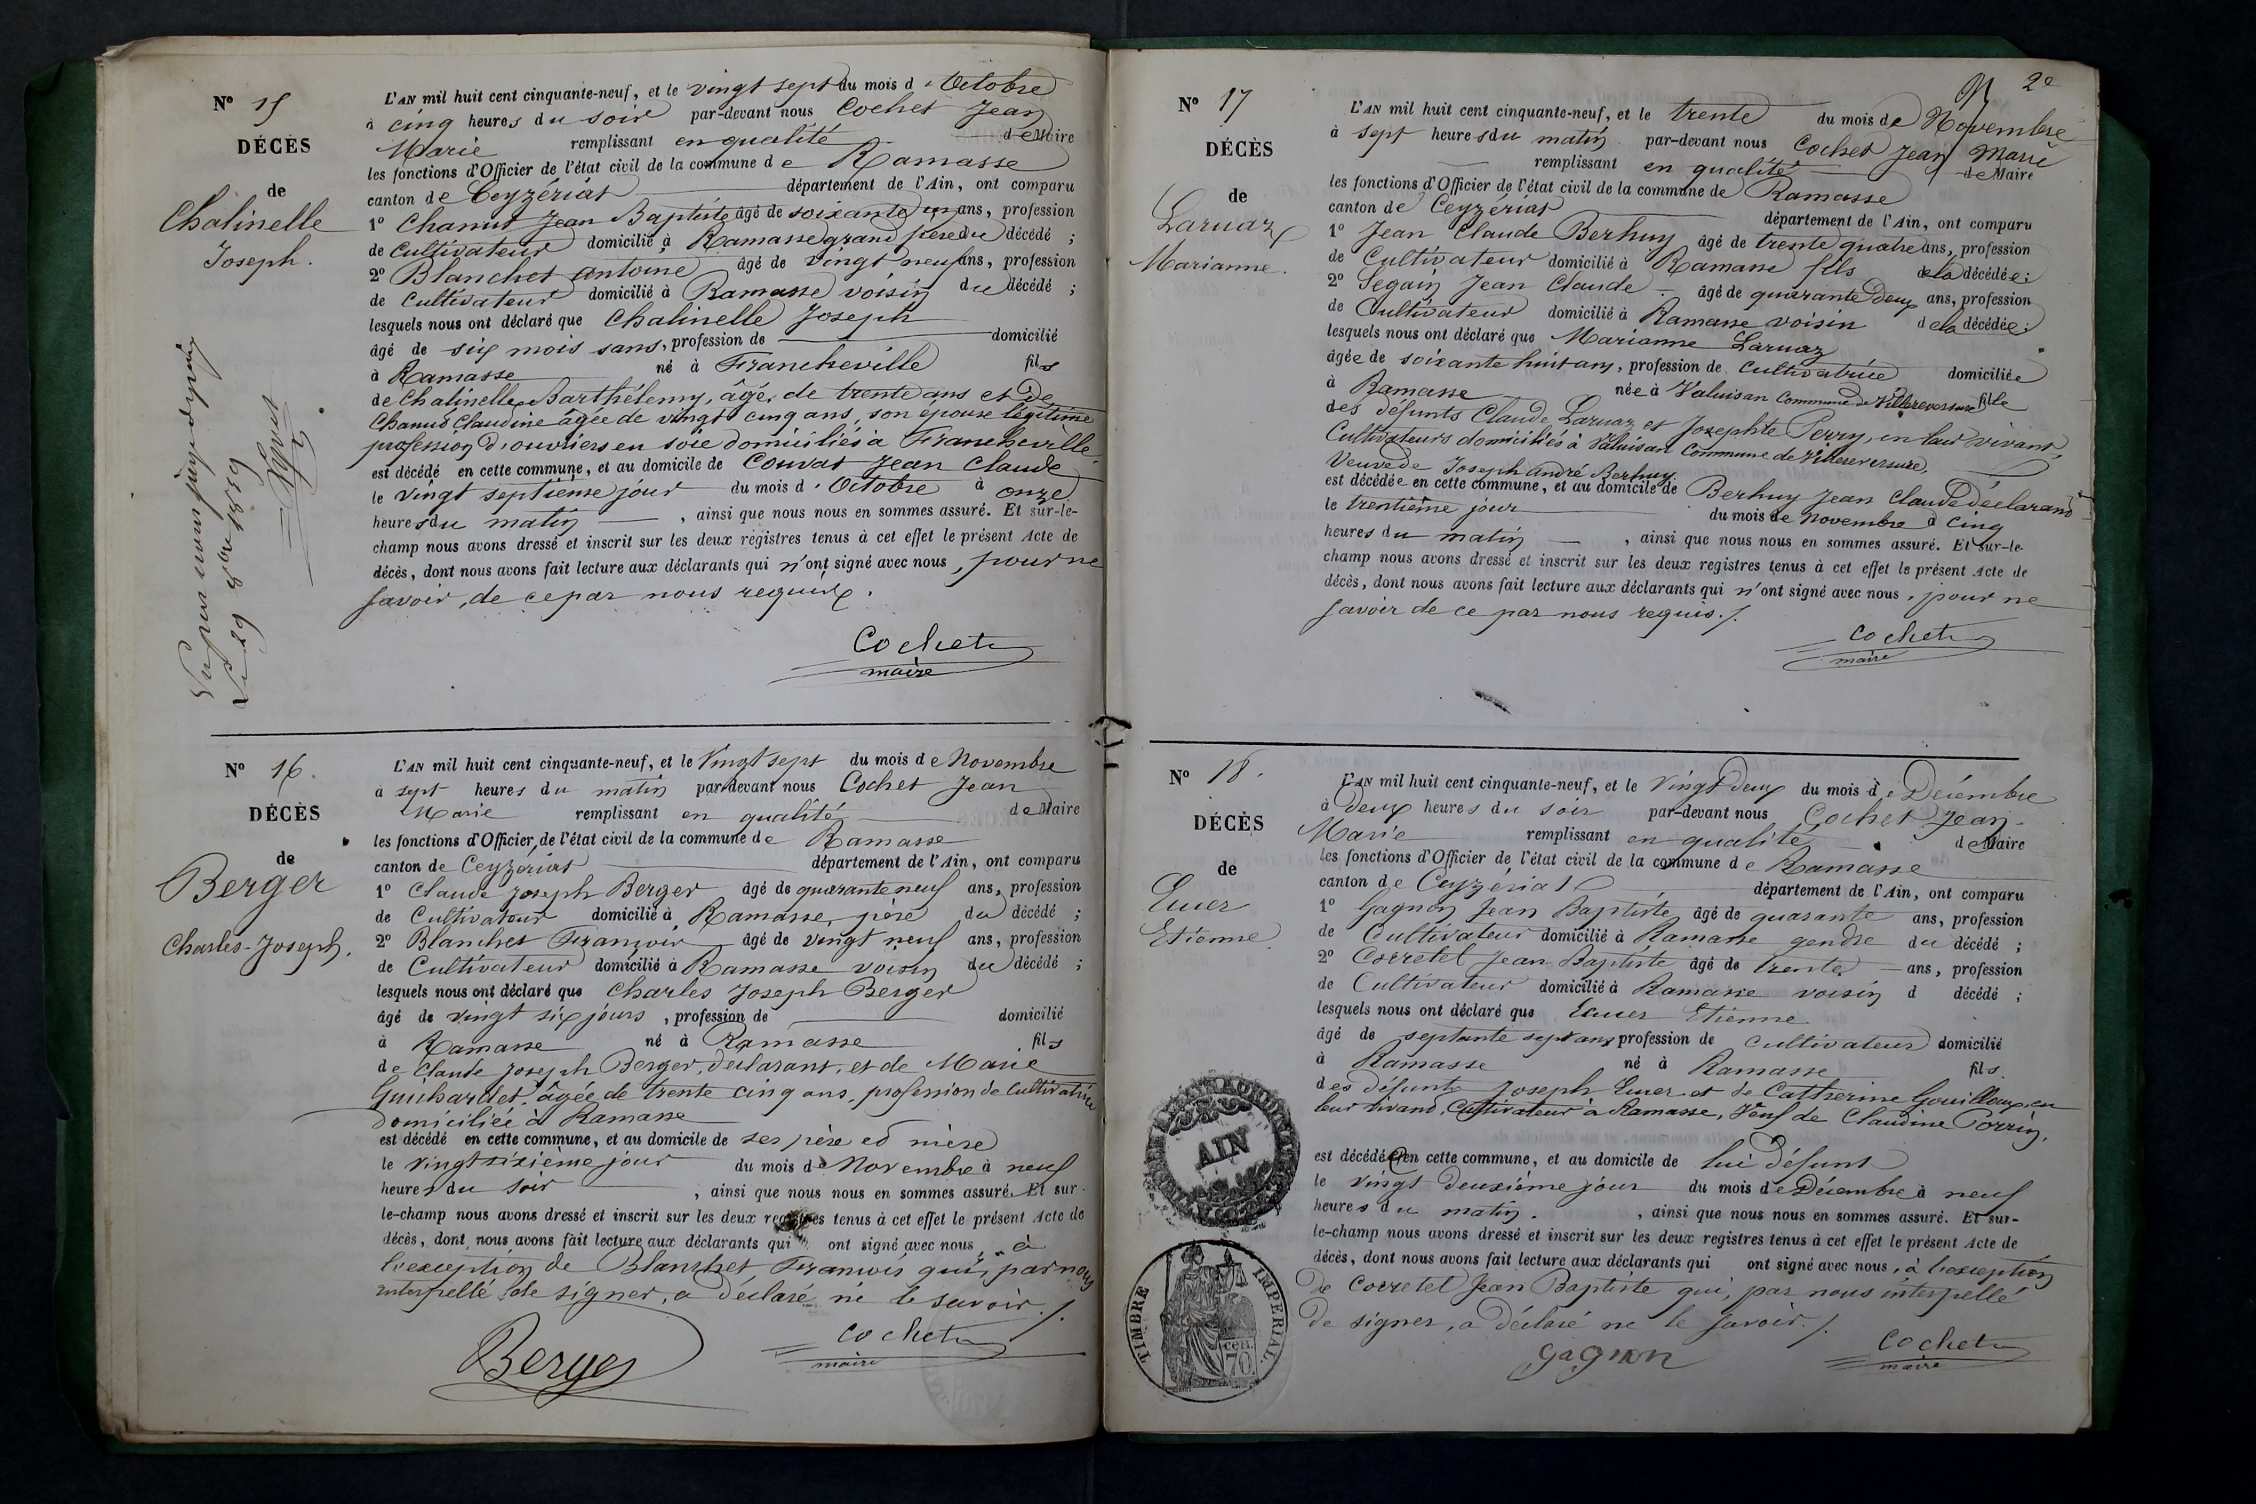 N° 15
DÉCÈS
de
Chalinelle
Joseph.
L'AN mil huit cent cinquante-neuf, et le vingt sept du mois d'Octobre
à cinq heures du soir par-devant nous Cochet Jean
Marie remplissant en qualité de Maire
les fonctions d'Officier de l'état civil de la commune de Ramasse
canton de Ceyzériat département de l'Ain, ont comparu
1° Chanut Jean Baptiste âgé de soixante un ans, profession
de Cultivateur domicilié à Ramasse grand père du décédé ;
2° Blanchet Antoine âgé de vingt neuf ans, profession
de Cultivateur domicilié à Ramasse voisin du décédé ;
lesquels nous ont déclaré que Chalinelle Joseph
âgé de six mois sans, profession de domicilié
à Ramasse né à Francheville fils
de Chalinelle Barthélemy, âgé de trente ans et de
Chanut Claudine âgée de vingt cinq ans, son épouse légitime
profession d'ouvriers en soie domiciliés à Francheville.
est décédé en cette commune, et au domicile de Couvat Jean Claude
le vingt septième jour du mois d'Octobre à onze
heures du matin , ainsi que nous nous en sommes assuré. Et sur-le-
champ nous avons dressé et inscrit sur les deux régistres tenus à cet effet le présent Acte de
décès, dont nous avons fait lecture aux déclarants qui n'ont signé avec nous, pour ne
savoir, de ce par nous requis.
Cochet
maire
Vu par nous juge de paix
Le 29 8bre 1859
N° 16.
DÉCÈS
de
Berger
Charles-Joseph.
L'AN mil huit cent cinquante-neuf, et le Vingt sept du mois de Novembre
à sept heures du matin par-devant nous Cochet Jean
Marie remplissant en qualité de Maire
les fonctions d'Officier de l'état civil de la commune de Ramasse
canton de Ceyzériat département de l'Ain, ont comparu
1° Claude Joseph Berger âgé de quarante neuf ans, profession
de Cultivateur domicilié à Ramasse, père du décédé ;
2° Blanchet François âgé de vingt neuf ans, profession
de Cultivateur domicilié à Ramasse voisin du décédé ;
lesquels nous ont déclaré que Charles Joseph Berger
âgé de vingt six jours , profession de domicilié
à Ramasse né à Ramasse fils
de Claude Joseph Berger, déclarant, et de Marie
Guichardet, âgée de trente cinq ans, profession de Cultivatrice
domiciliée à Ramasse
est décédé en cette commune, et au domicile de ses père et mère
le vingt sixième jour du mois de Novembre à neuf
heures du soir , ainsi que nous nous en sommes assuré. Et sur-
le-champ nous avons dressé et inscrit sur les deux registres tenus à cet effet le présent Acte de
décès, dont nous avons fait lecture aux déclarants qui ont signé avec nous, à
l'exception de Blanchet François qui, par nous
interpellé de signer, a déclaré ne le savoir./.
Berger
Cochet
maire
2e
N° 17
DÉCÈS
de
Laruaz
Marianne.
L'AN mil huit cent cinquante-neuf, et le trente du mois de Novembre
à sept heures du matin par-devant nous Cochet Jean Marie
remplissant en qualité de Maire
les fonctions d'Officier de l'état civil de la commune de Ramasse
canton de Ceyzériat département de l'Ain, ont comparu
1° Jean Claude Berhuy âgé de trente quatre ans, profession
de Cultivateur domicilié à Ramasse fils de la décédée ;
2° Segain Jean Claude âgé de quarante deux ans, profession
de Cultivateur domicilié à Ramasse voisin de la décédée ;
lesquels nous ont déclaré que Marianne Laruaz
âgée de soixante huit ans, profession de Cultivatrice domiciliée
à Ramasse née à Valuisan Commune de Villereversure fille
des défunts Claude Laruaz et Josephte Perry, en leur vivant,
Cultivateurs domiciliés à Valuisan Commune de Villereversure,
Veuve de Joseph André Berhuy.
est décédée en cette commune, et au domicile de Berhuy Jean Claude déclarant
le trentième jour du mois de Novembre à cinq
heures du matin , ainsi que nous nous en sommes assuré. Et sur-le-
champ nous avons dressé et inscrit sur les deux registres tenus à cet effet le présent Acte de
décès, dont nous avons fait lecture aux déclarants qui n'ont signé avec nous, pour ne
savoir de ce par nous requis./.
Cochet
maire
N° 18.
DÉCÈS
de
Euer
Etienne.
L'AN mil huit cent cinquante-neuf, et le vingt deux du mois de Décembre
à deux heures du soir par-devant nous Cochet Jean-
Marie remplissant en qualité de Maire
les fonctions d'Officier de l'état civil de la commune de Ramasse
canton de Ceyzériat département de l'Ain, ont comparu
1° Gagnon Jean Baptiste âgé de quarante ans, profession
de Cultivateur domicilié à Ramasse gendre du décédé ;
2° Corretel Jean Baptiste âgé de trente ans, profession
de Cultivateur domicilié à Ramasse voisin d décédé ;
lesquels nous ont déclaré que Euer Etienne
âgé de septante sept ans profession de cultivateur domicilié
à Ramasse né à Ramasse fils
des défunts Joseph Euer et de Catherine Gouilloux, en
leur vivant, Cultivateur à Ramasse, Veuf de Claudine Perrin.
est décédé en cette commune, et au domicile de lui défunt
le vingt deuxième jour du mois de Décembre à neuf
heures du matin. , ainsi que nous nous en sommes assuré. Et sur-
le-champ nous avons dressé et inscrit sur les deux registres tenus à cet effet le présent Acte de
décès, dont nous avons fait lecture aux déclarants qui ont signé avec nous, à l'exception
de Corretel Jean Baptiste qui, par nous interpellé
de signer, a déclaré ne le savoir./.
gagnon
Cochet
maire
AIN
TIMBRE IMPERIAL.
CEN.
70